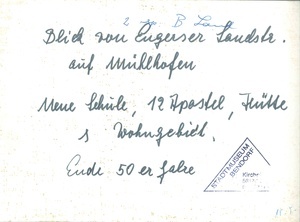 Blick von Engerser Landstr.
auf Mühlhofen
Neue Schule, 12 Apostel, Hütte
Wohngebiet.
Ende 50er Jahre
STADTMUSEUM
BENDORF